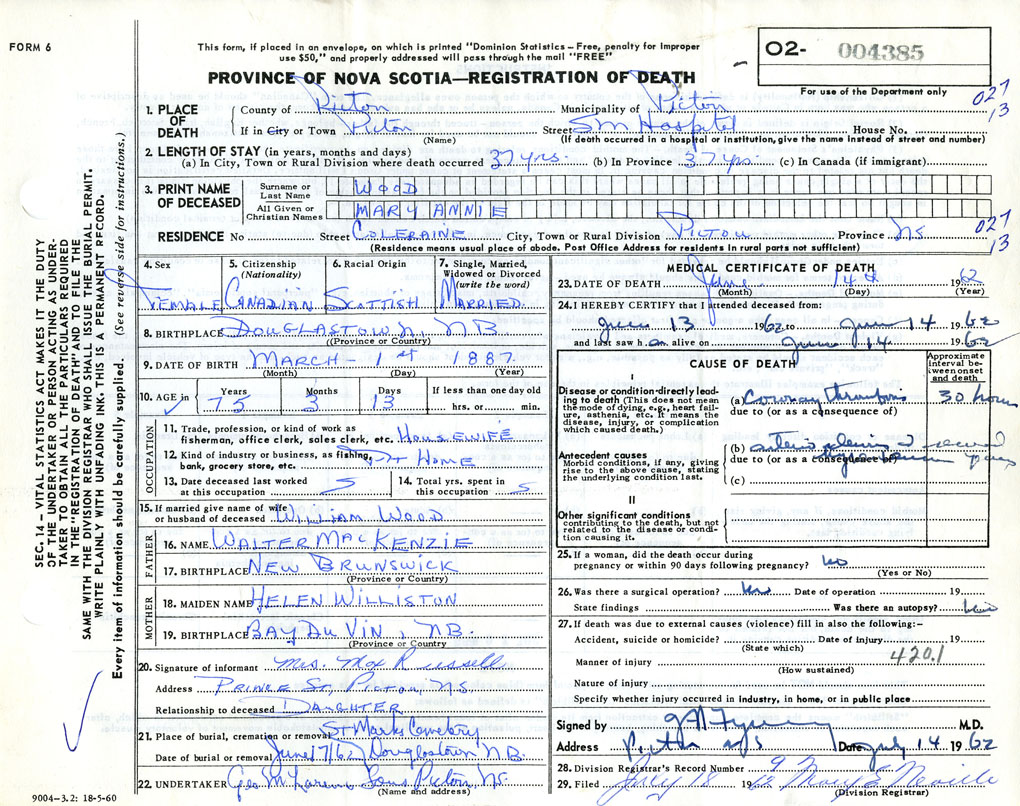 FORM 6
This form, if placed in an envelope, on which is printed "Dominion Statistics – Free, penalty for improper
use $50," and properly addressed will pass through the mail "FREE"
O2- 004385
For use of the Department only
PROVINCE OF NOVA SCOTIA—REGISTRATION OF DEATH
027
13
1. PLACE OF DEATH
County of Picton Municipality of Picton
If in City or Town Picton Street S M Hospital House No.
(Name) (If death occurred in a hospital or institution, give the name instead of street and number)
2. LENGTH OF STAY (in years, months and days)
(a) In City, Town or Rural Division where death occurred 37 yrs. (b) In Province 37 yrs. (c) In Canada (if immigrant)
3. PRINT NAME OF DECEASED
Surname or Last Name WOOD
All Given or Christian Names MARY ANNIE
RESIDENCE No Street COLERAINE City, Town or Rural Division PICTOU Province NS
027
13
(Residence means usual place of abode. Post Office Address for residents in rural parts not sufficient)
4. Sex FEMALE
5. Citizenship (Nationality) CANADIAN
6. Racial Origin SCOTTISH
7. Single, Married, Widowed or Divorced (write the word) MARRIED
8. BIRTHPLACE DOUGLASTOWN, NB.
(Province or Country)
9. DATE OF BIRTH MARCH - 1st 1887
(Month) (Day) (Year)
10. AGE in Years 75 Months 3 Days 13 If less than one day old hrs. or min.
OCCUPATION
11. Trade, profession, or kind of work as
fisherman, office clerk, sales clerk, etc. HOUSEWIFE
12. Kind of industry or business, as fishing,
bank, grocery store, etc. AT HOME
13. Date deceased last worked
at this occupation
14. Total yrs. spent in
this occupation
15. If married give name of wife
or husband of deceased WILLIAM WOOD
FATHER
16. NAME WALTER MACKENZIE
17. BIRTHPLACE NEW BRUNSWICK
(Province or Country)
MOTHER
18. MAIDEN NAME HELEN WILLISTON
19. BIRTHPLACE BAY DU VIN, NB.
(Province or Country
20. Signature of informant Mrs. Max Russell
Address PRINCE ST, PICTOU, NS.
Relationship to deceased DAUGHTER
21. Place of burial, cremation or removal St Marks Cemetery
Date of burial or removal June 17/62 Douglastown N.B.
22. UNDERTAKER Geo M Sons Picton NS.
(Name and address)
9004–3.2: 18-5-60
MEDICAL CERTIFICATE OF DEATH
23. DATE OF DEATH June 14th 1962
(Month) (Day) (Year)
24. I HEREBY CERTIFY that I attended deceased from:
June 13 1962 to June 14 1962
and last saw h alive on June 14 1962
CAUSE OF DEATH
Approximate interval between onset and death
I
Disease or condition directly leading to death (This does not mean the mode of dying, e.g., heart failure, asthenia, etc. It means the disease, injury, or complication which caused death.)
(a) Coronary thrombosis 30 hours
due to (or as a consequence of)
Antecedent causes
Morbid conditions, if any, giving rise to the above cause, stating the underlying condition last.
(b) several years
due to (or as a consequence of)
(c)
II
Other significant conditions
contributing to the death, but not related to the disease or condition causing it.
25. If a woman, did the death occur during
pregnancy or within 90 days following pregnancy? no
(Yes or No)
26. Was there a surgical operation? Date of operation 19
State findings Was there an autopsy?
27. If death was due to external causes (violence) fill in also the following:–
Accident, suicide or homicide? Date of injury 19
(State which) 420.1
Manner of injury
(How sustained)
Nature of injury
Specify whether injury occurred in industry, in home, or in public place
Signed by M.D.
Address Date July 14 1962
28. Division Registrar's Record Number 9
29. Filed July 18 1962
(Division Registrar)
SEC. 14 – VITAL STATISTICS ACT MAKES IT THE DUTY
OF THE UNDERTAKER OR PERSON ACTING AS UNDER-
TAKER TO OBTAIN ALL THE PARTICULARS REQUIRED
IN THE "REGISTRATION OF DEATH" AND TO FILE THE
SAME WITH THE DIVISION REGISTRAR WHO SHALL ISSUE THE BURIAL PERMIT.
WRITE PLAINLY WITH UNFADING INK. THIS IS A PERMANENT RECORD.
Every item of information should be carefully supplied. (See reverse side for instructions.)